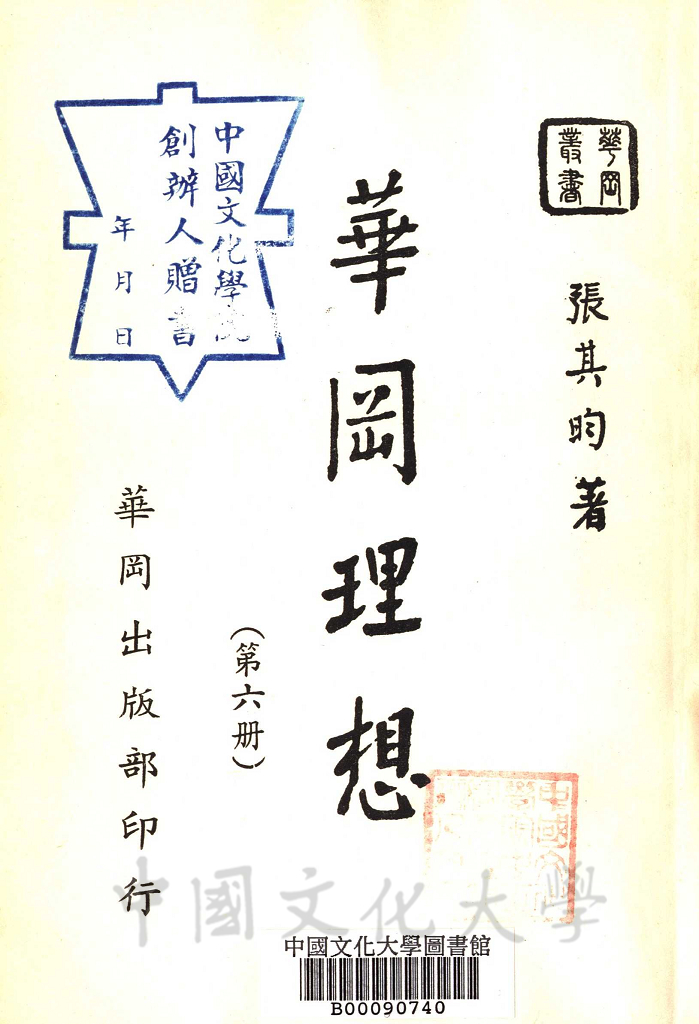 華岡
叢書
張其昀著
華岡理想
(第六册)
華岡出版部印行
中國文化學院
創辦人贈書
年月日
中國文化大學
中國文化大學圖書館
B00090740